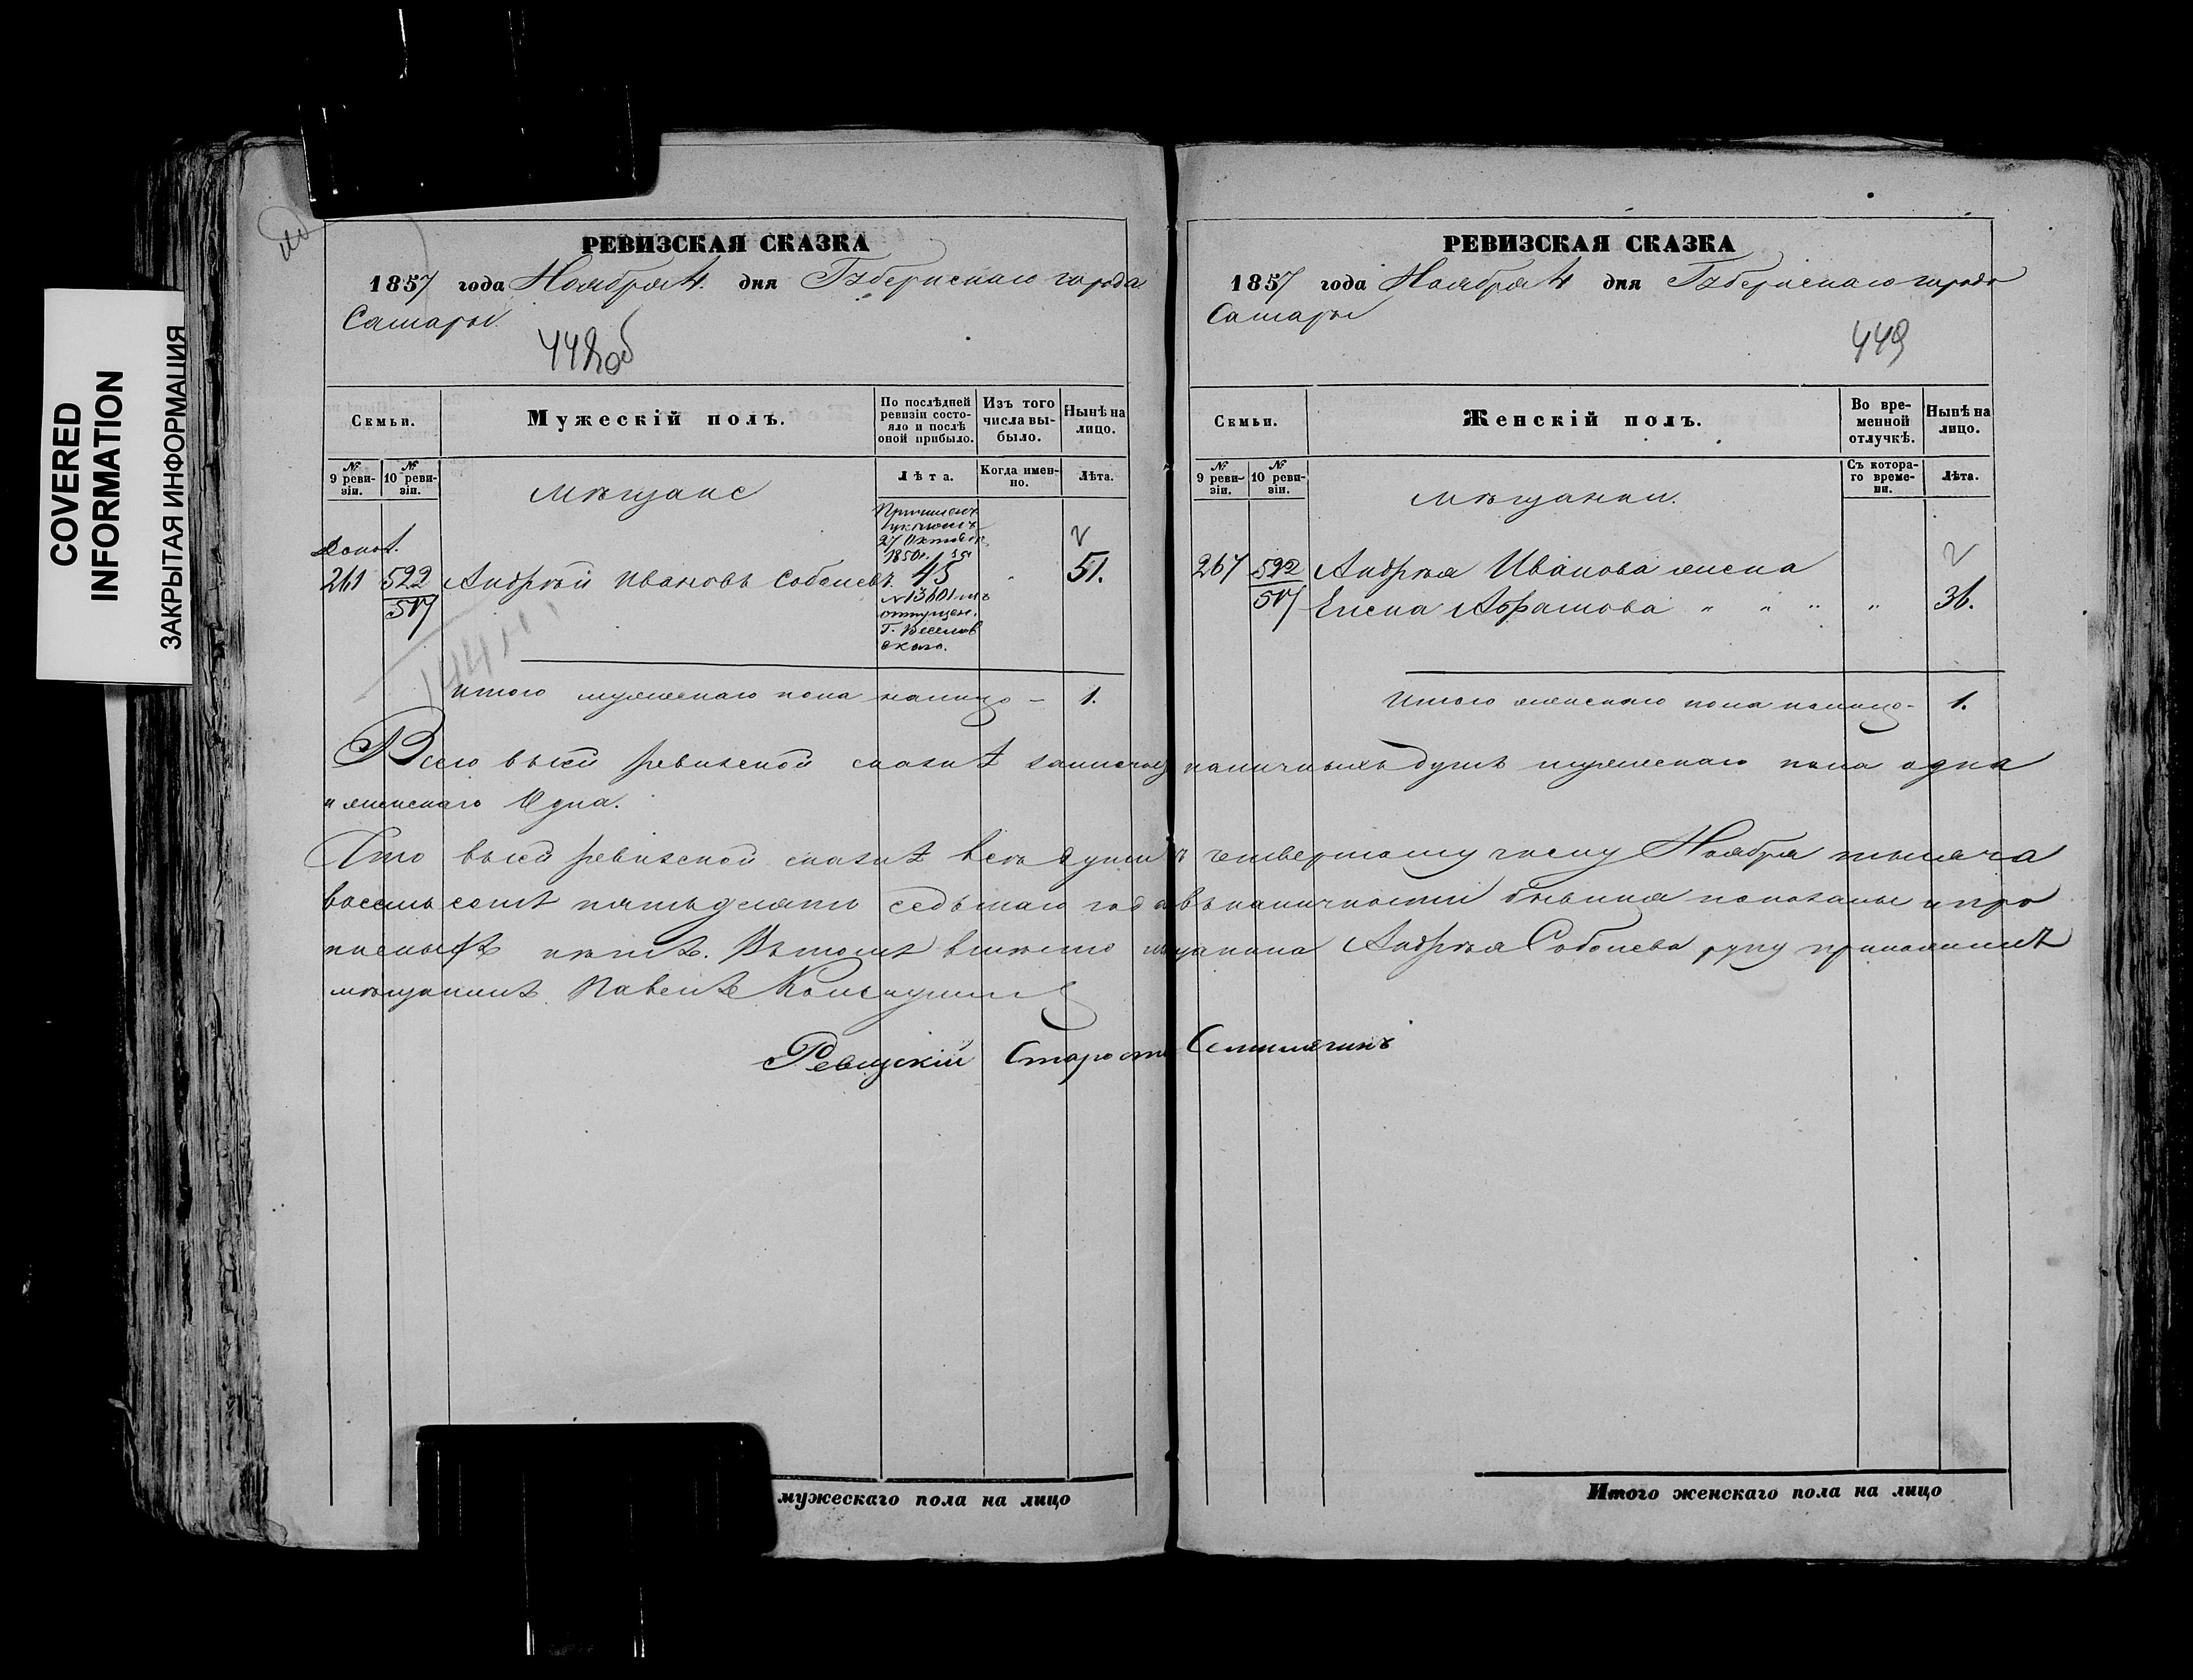 COVERED
INFORMATION
ЗАКРЫТАЯ ИНФОРМАЦИЯ
РЕВИЗСКАЯ СКАЗКА
1857 года Ноября 4. дня Губернскаго города
Самары.
448 об
Семьи.
Мужескій полъ.
По послѣдней ревизіи состояло и послѣ оной прибыло.
Изъ того числа выбыло.
Нынѣ на лицо.
№ 9 ревизіи.
№ 10 ревизіи.
мѣщане
Лѣта.
Когда именно.
Лѣта.
Причисленъ
указомъ
27 Октября
1850 г. за
Допол.
261 522/517 Андрей Ивановъ Соболевъ. 45 51.
№ 13601 изъ
отпущен.
Г. Веселов
скаго.
Итого мужескаго пола налицо — 1.
РЕВИЗСКАЯ СКАЗКА
1857 года Ноября 4 дня Губернскаго города
Самары
449
Семьи.
Женскій полъ.
Во временной отлучкѣ.
Нынѣ на лицо.
№ 9 ревизіи.
№ 10 ревизіи.
мѣщанки.
Съ котораго времени.
Лѣта.
267 522/517 Андрѣя Иванова жена
Елена Абрамова " " " " 36.
Итого женскаго пола налицо - 1.
Всего въ сей ревизской сказкѣ записано наличныхъ душъ мужескаго пола одна
и женскаго Одна.
Что въ сей ревизской сказкѣ всѣ души къ четвертому числу Ноября тысяча
восемь сотъ пятьдесятъ седьмаго года въ наличности бывшия показаны и про
писныхъ нѣтъ. Въ томъ вмѣсто мѣщанина Андрѣя Соболева руку приложилъ
мѣщанинъ Павелъ
Ревизскій Староста
мужескаго пола на лицо
Итого женскаго пола на лицо